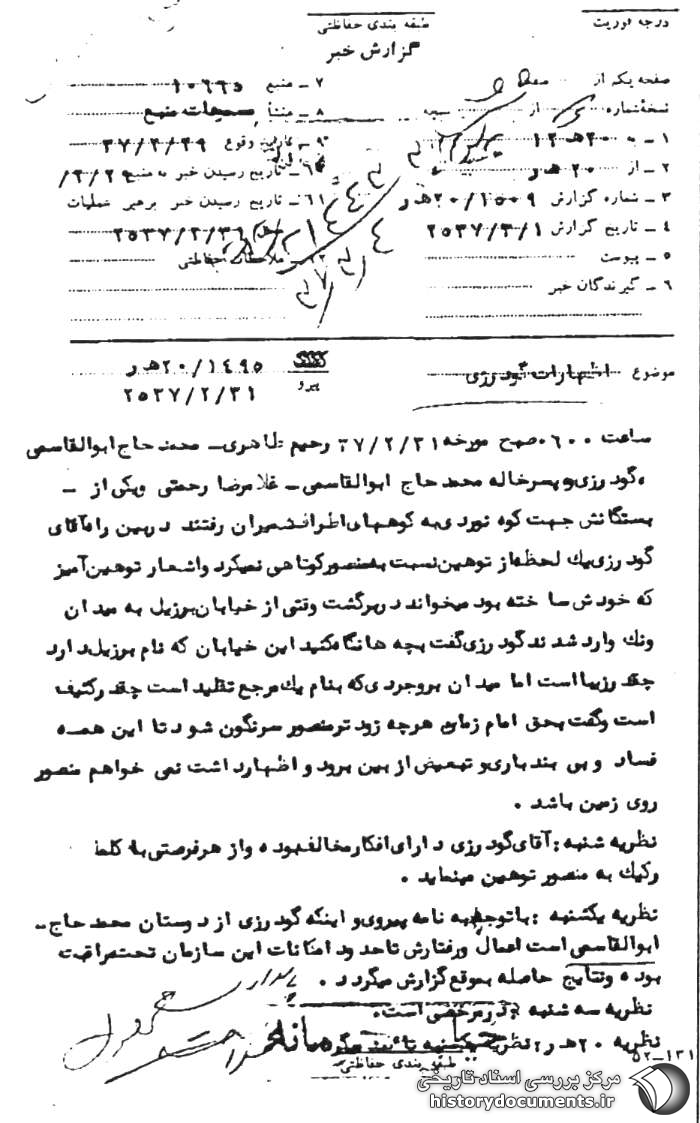 درجه فوریت
طبقه بندی حفاظتی
گزارش خبر
صفحه یکم از صفحه
نسخهٔ شماره از نسخه
۱ ـ به ۲۰ هـ ۱۲
۲ ـ از ۲۰ هـ ر
۳ ـ شماره گزارش ۲۰/۱۵۰۹ هـ ر
۴ ـ تاریخ گزارش ۲۵۳۷/۳/۱
۵ ـ پیوست
۶ ـ گیرندگان خبر
۷ ـ منبع ۱۰۶۶۵
۸ ـ منشأ منبع
۹ ـ تاریخ وقوع
تاریخ رسیدن خبر به منبع
تاریخ رسیدن خبر برهبر عملیات
ملاحظات حفاظتی
موضوع اظهارات گودرزی
پیرو ۲۰/۱۴۹۵ هـ ر
۲۵۳۷/۲/۳۱
ساعت ۰۶۰۰ صبح مورخه ۳۷/۲/۳۱ رحیم طاهری ـ محمد حاج ابوالقاسمی
، گودرزی و پسرخاله محمد حاج ابوالقاسمی ـ غلامرضا رحمتی و یکی از ـ
بستگانش جهت کوه نوردی به کوههای اطراف شمیران رفتند در بین راه آقای
گودرزی یك لحظه از توهین نسبت به منصور کوتاهی نمیکرد و اشعار توهین آمیز
که خودش ساخته بود میخواند در برگشت وقتی از خیابان برزیل به میدان
ونك وارد شدند گودرزی گفت بچه ها نگاه کنید این خیابان که نام برزیل دارد
چقدر زیبا است اما میدان بروجردی که بنام یك مرجع تقلید است چقدر کثیف
است و گفت بحق امام زمان هرچه زودتر منصور سرنگون شود تا این همه
فساد و بی بند باری و تبعیض از بین برود و اظهار داشت نمی خواهم منصور
روی زمین باشد .
نظریه شنبه : آقای گودرزی دارای افکار مخالف بوده و از هر فرصتی با کلمات
رکیك به منصور توهین مینماید .
نظریه یکشنبه : با توجه به نامه پیروی و اینکه گودرزی از دوستان محمد حاج ـ
ابوالقاسمی است اعمال و رفتارش تا حدود امکانات این سازمان تحت مراقبت
بوده و نتایج حاصله بموقع گزارش میگردد .
نظریه سه شنبه : در مرخصی است .
نظریه ۲۰ هـ ر : نظریه یکشنبه تائید میگردد
طبقه بندی حفاظتی
۵۲ـ۱۳۱
مرکز بررسی اسناد تاریخی
historydocuments.ir